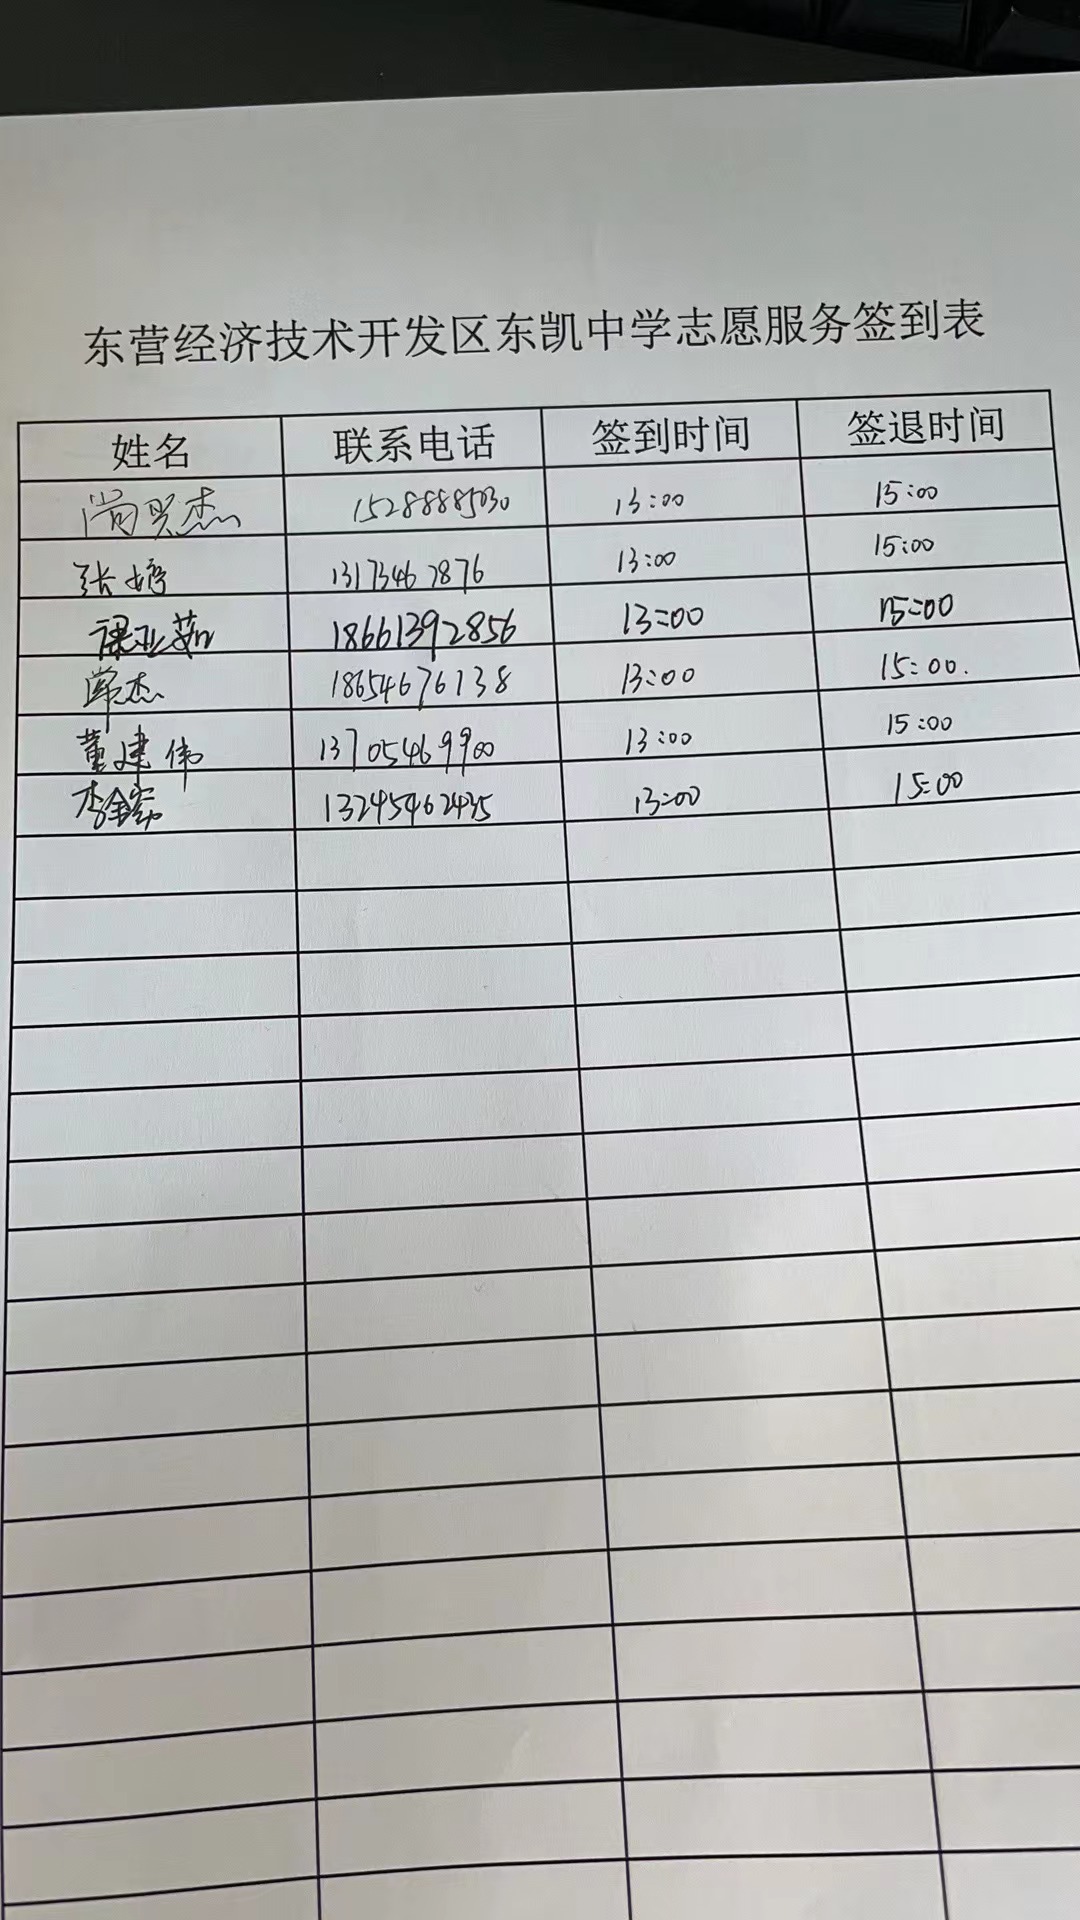 东营经济技术开发区东凯中学志愿服务签到表
姓名 联系电话 签到时间 签退时间
尚贤杰 15288885030 13:00 15:00
张婷 13173467876 13:00 15:00
梁亚茹 18661392856 13:00 15:00
常杰 18654676138 13:00 15:00.
董建伟 13705469900 13:00 15:00
13245462435 13:00 15:00